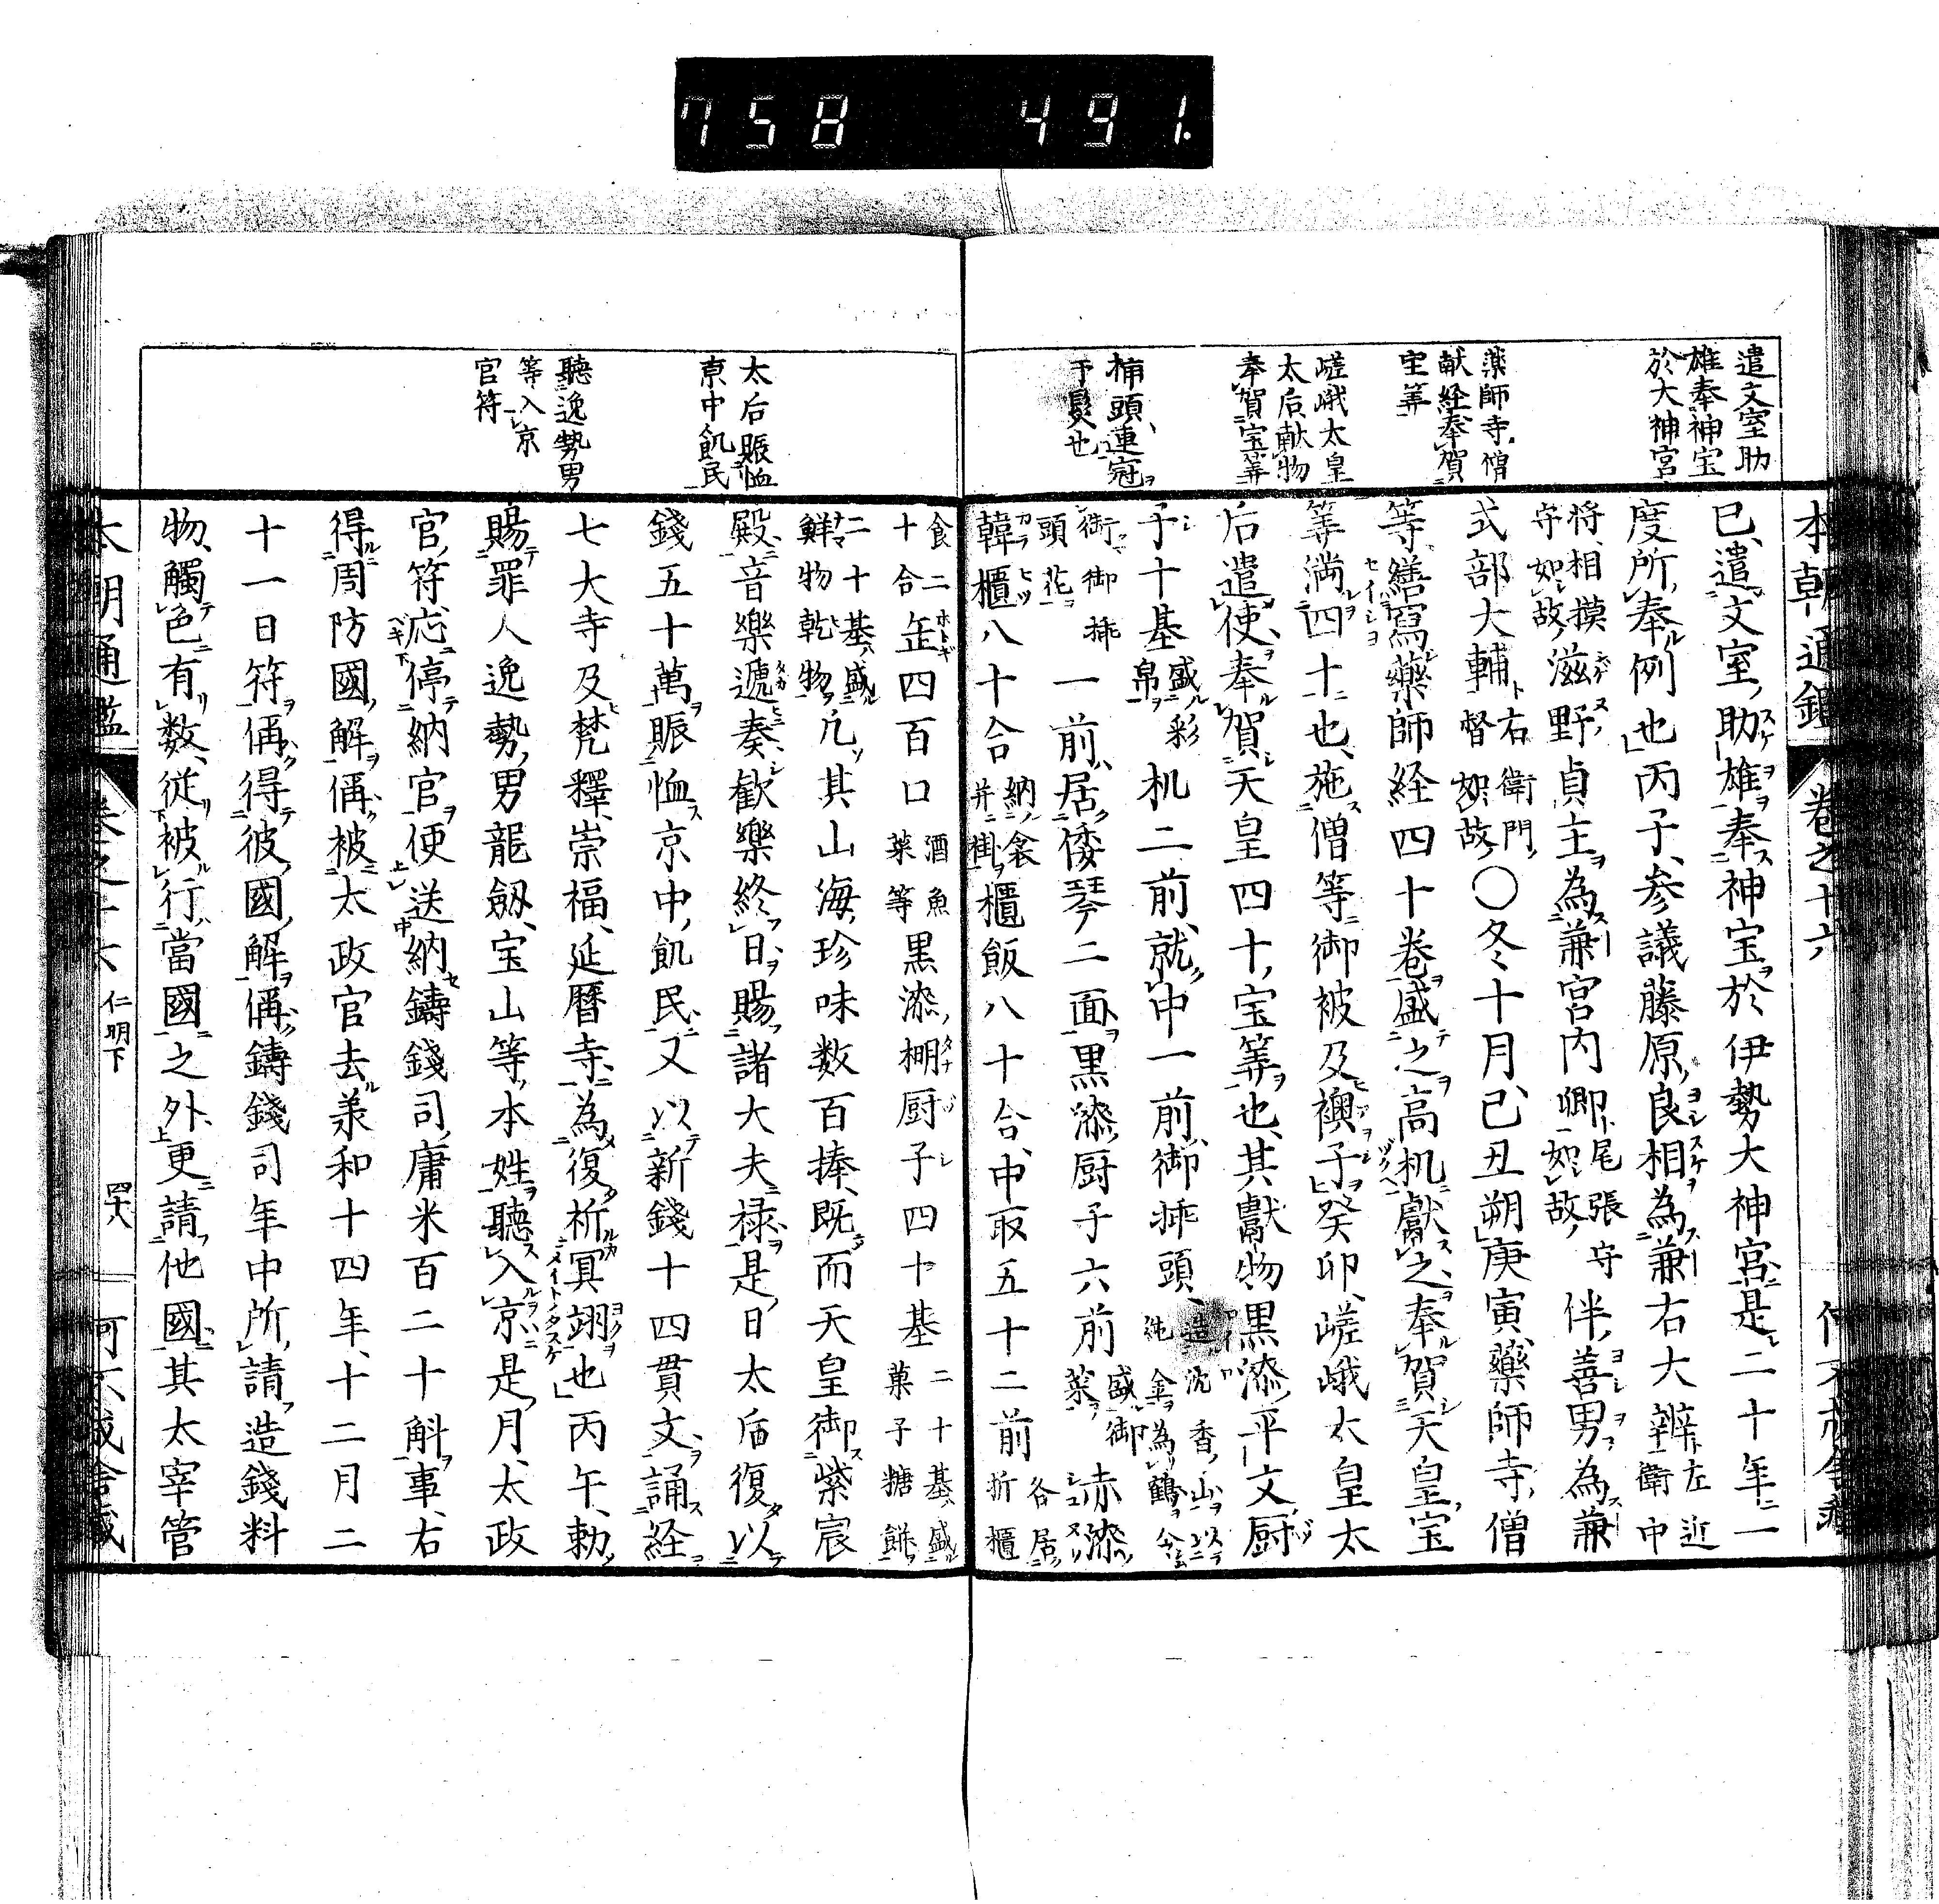 758 491.
本朝通鑑 卷之十六
遣文室助
雄奉神宝
於大神宮
薬師寺僧
献経奉賀
宝筭
嵯峨太皇
太后献物
奉賀宝筭
挿頭連冠
于髮也
已遣文室助雄奉神宝於伊勢大神宮是二十年一
度所奉例也丙子参議藤原良相為兼右大辨左近衛中
将相摸守如故滋野貞主為兼宮内卿尾張守如故伴善男為兼
式部大輔右衛門督如故〇冬十月己丑朔庚寅藥師寺僧
等繕寫藥師経四十卷盛之高机獻之奉賀天皇宝
等満四十也施僧等御被及襖子癸卯嵯峨太皇太
后遣使奉賀天皇四十宝筭也其獻物黒漆平文厨
子十基盛彩帛机二前就中一前御挿頭造沈香山以純金為鶴令
御御挿頭花一前居倭琴二面黒漆厨子六前盛御菜赤漆
韓櫃八十合納衾并褂櫃飯八十合中取五十二前各居折櫃
太后賑恤
京中飢民
聽逸勢男
等入京
官符
食二十合缶四百口酒魚菜等黒漆棚厨子四十基二十基盛菓子糖餅
二十基盛鮮物乾物凢其山海珍味数百捧既而天皇御紫宸
殿音樂遞奏歡樂終日賜諸大夫禄是日太后復以
錢五十萬賑恤京中飢民又以新錢十四貫文誦経
七大寺及梵釋崇福延暦寺為復祈冥翊也丙午勅
賜罪人逸勢男龍劔宝山等本姓聽入京是月太政
官符応停納官便送納鑄錢司庸米百二十斛事右
得周防國解偁被太政官去承和十四年十二月二
十一日符偁得彼國解偁鑄錢司年中所請造錢料
物觸色有数従被行當國之外更請他國其太宰管
卷之十六 仁明下 四十八